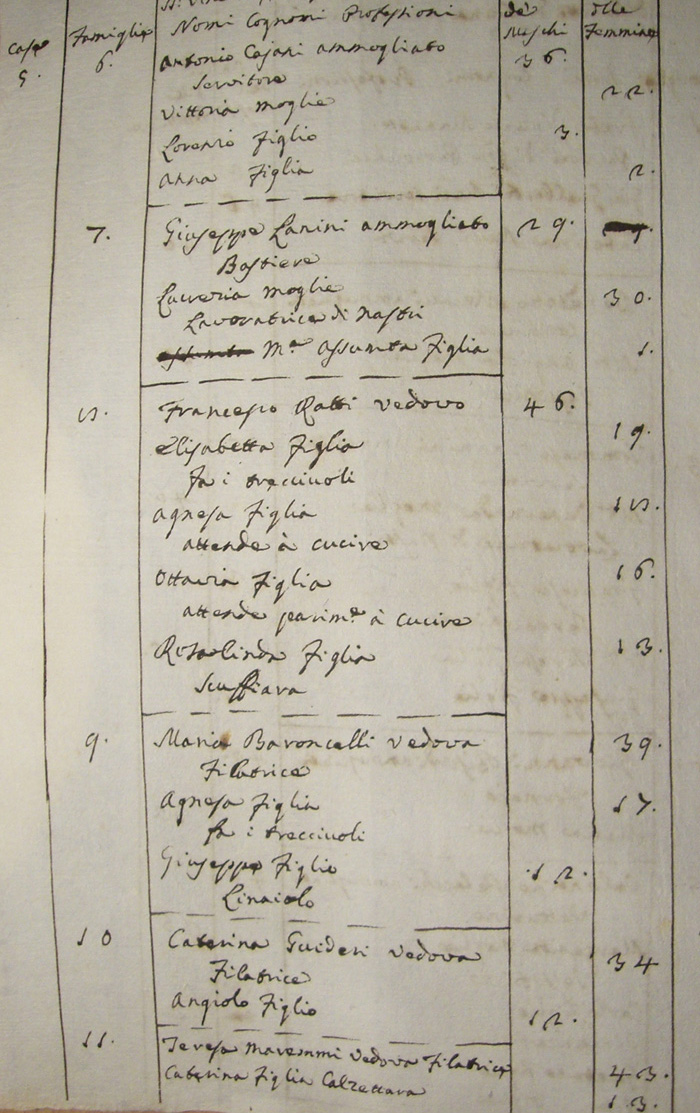 Case Famiglie Nomi Cognomi Professioni de' Maschi delle Femmine
5. 6. Antonio Cajani ammogliato 36.
Servitore
Vittoria moglie 22.
Lorenzo Figlio 3.
Anna Figlia 2.
7. Giuseppe Lanini ammogliato 29.
Bastiere
Lucrezia moglie 30.
Lavoratrice di Nastri
M.a Assunta Figlia 1.
8. Francesco Ratti vedovo 46.
Elisabetta Figlia 19.
fa i trecciuoli
Agnesa Figlia 18.
attende à cucire
Ottavia Figlia 16.
attende parim.e à cucire
Rosalinda Figlia 13.
Scuffiara
9. Maria Baroncelli vedova 39.
Filatrice
Agnesa Figlia 17.
fa i trecciuoli
Giuseppe Figlio 12.
Linaiolo
10 Caterina Guideri vedova 34
Filatrice
Angiolo Figlio 12.
11. Teresa Maremmi vedova Filatrice 43.
Caterina Figlia Calzettara 13.